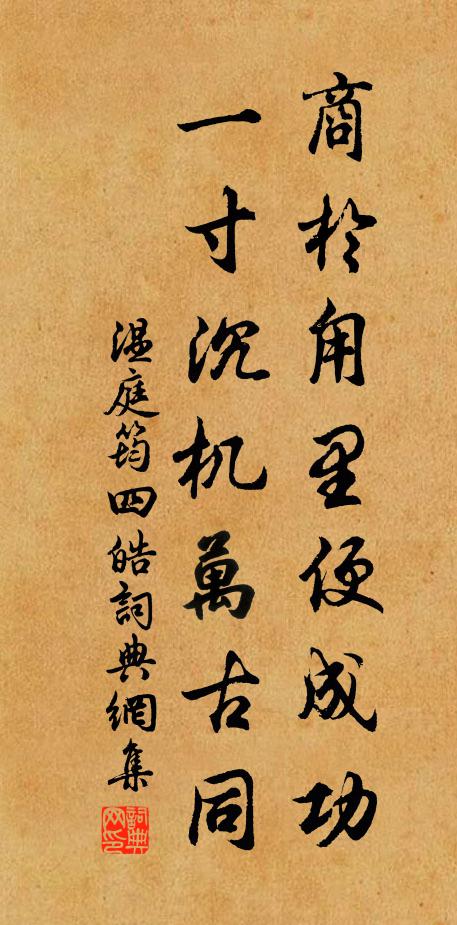 商於甪里便成功
一寸沉机萬古同
温庭筠四皓詞典網集
詞典網印